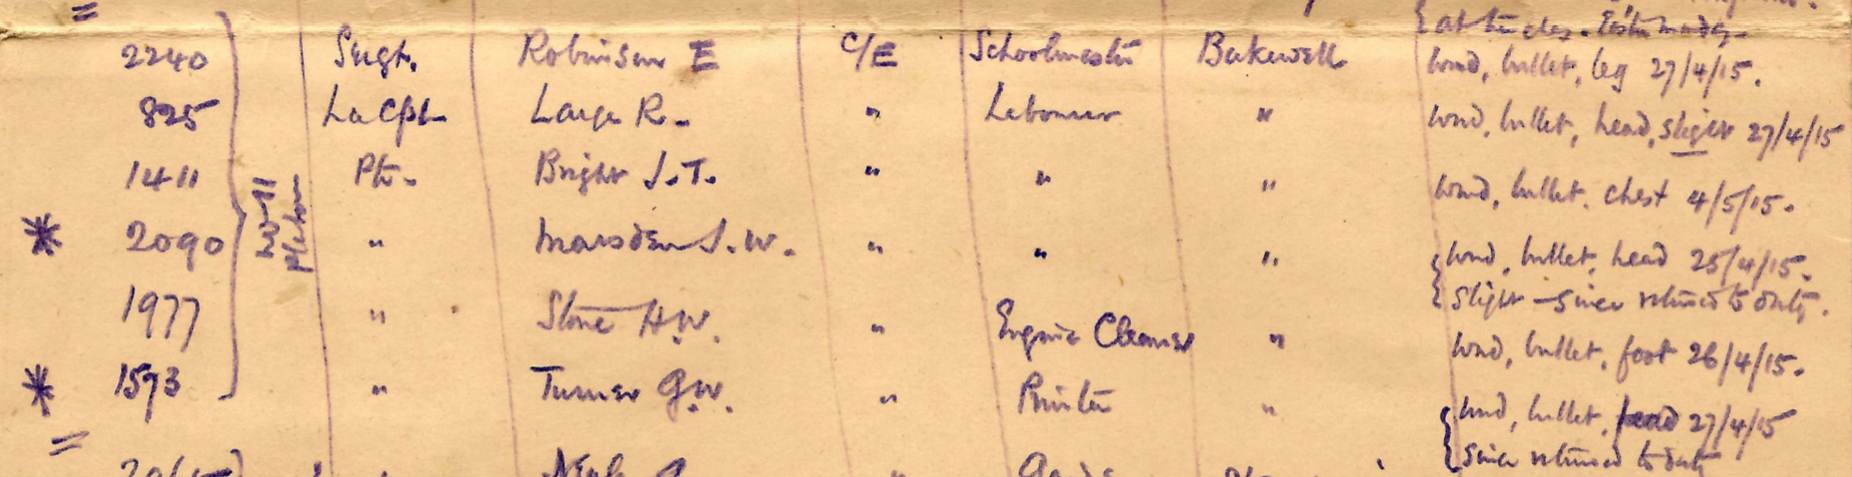 2240 Sergt. Robinson E C/E Schoolmaster Bakewell wnd, bullet, leg 27/4/15.
825 La Cpl Large R. " Labourer " wnd, bullet, head, slight 27/4/15
1411 Pte. Bright J.T. " " " wnd, bullet, chest 4/5/15.
* 2090 " Marsden J.W. " " " wnd, bullet, head 25/4/15.
slight – since returned to duty.
No 11
Platoon
1977 " Stone H.W. " Engine Cleaner " wnd, bullet, foot 26/4/15.
* 1593 " Turner G.W. " Printer " wnd, bullet, head 27/4/15
since returned to duty